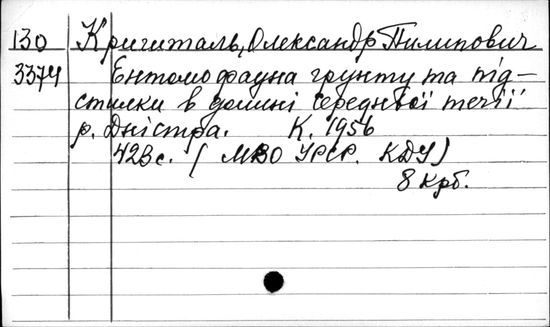 130 Кришталь, Олександр Пилипович
3374 Ентомофауна грунту та під-
стилки в долині середньої течії
р. Дністра. К. 1956
423 с. ( МВО УРСР. КДУ)
8 крб.